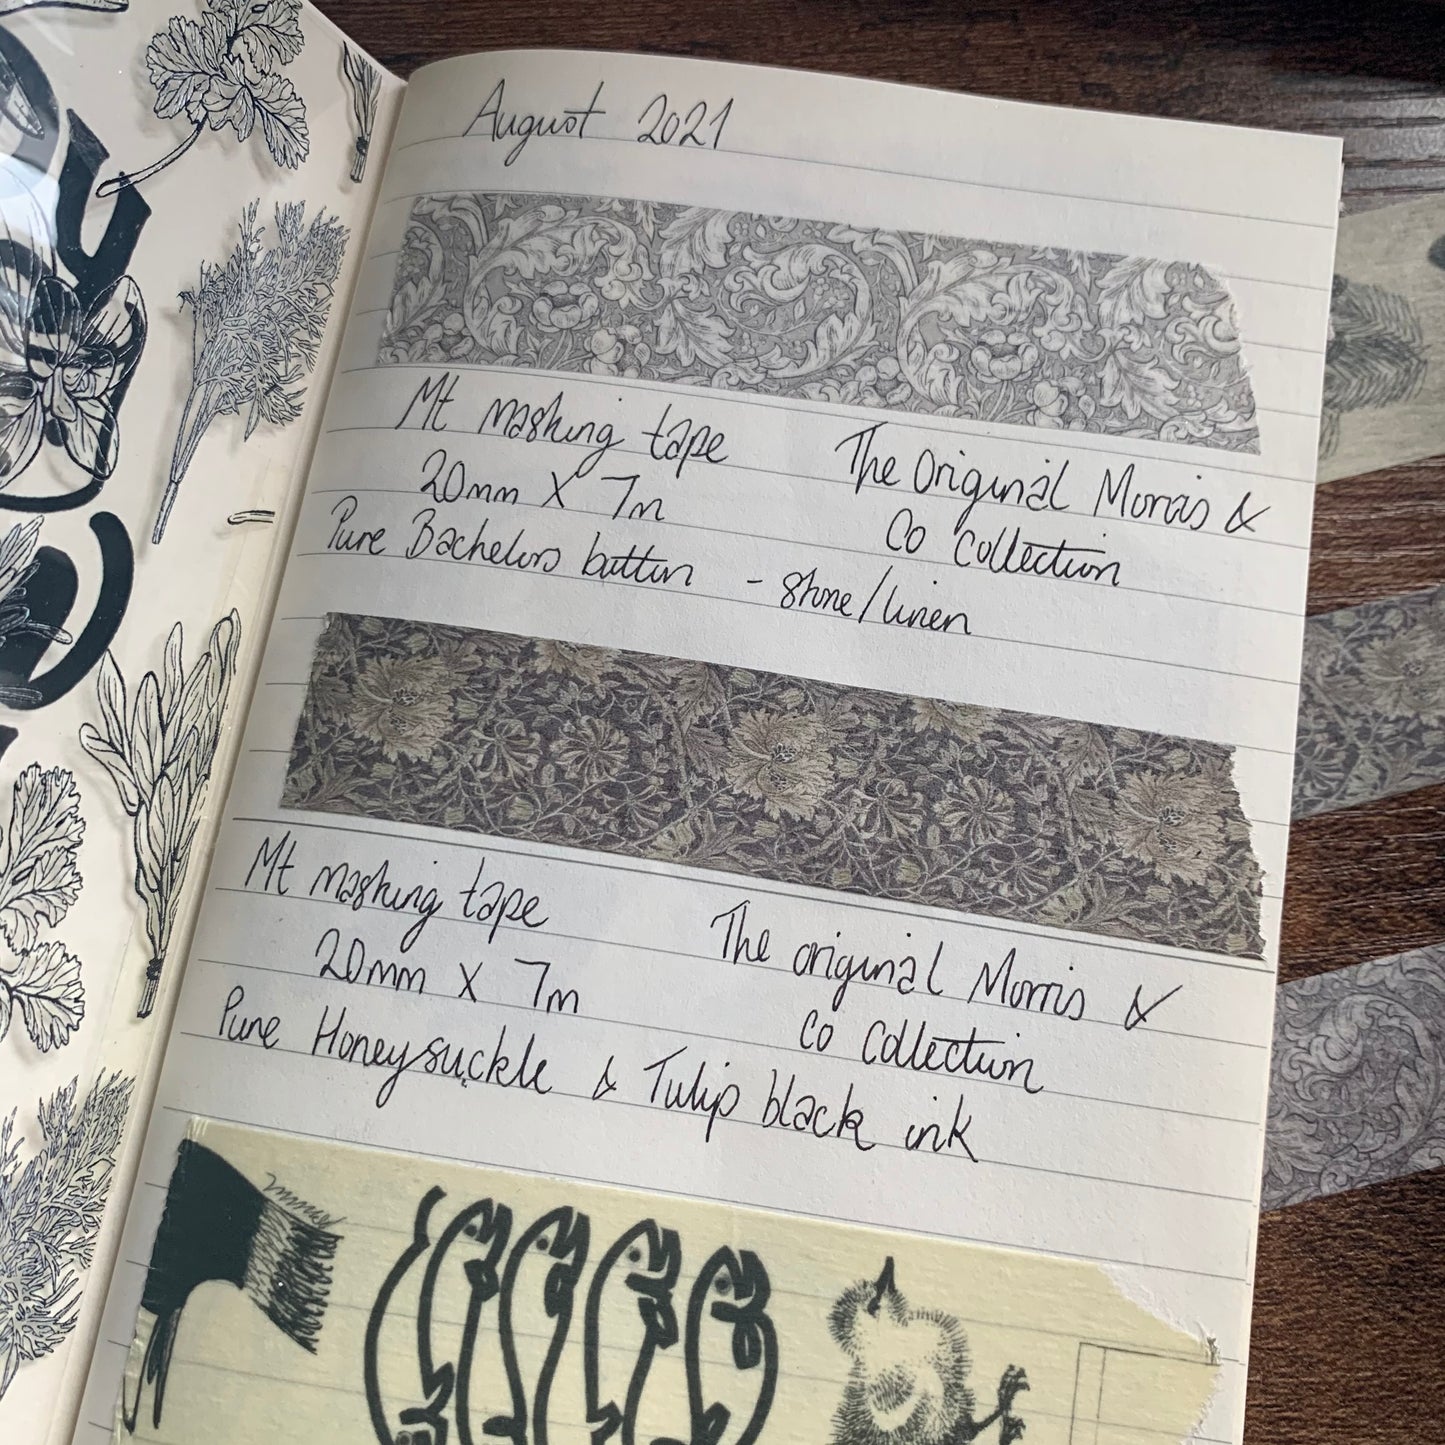 August 2021
Mt masking tape
20mm X 7m
The Original Morris &
Co Collection
Pure Bachelors button - stone/linen
Mt masking tape
20mm X 7m
The original Morris &
Co Collection
Pure Honeysuckle & Tulip black ink